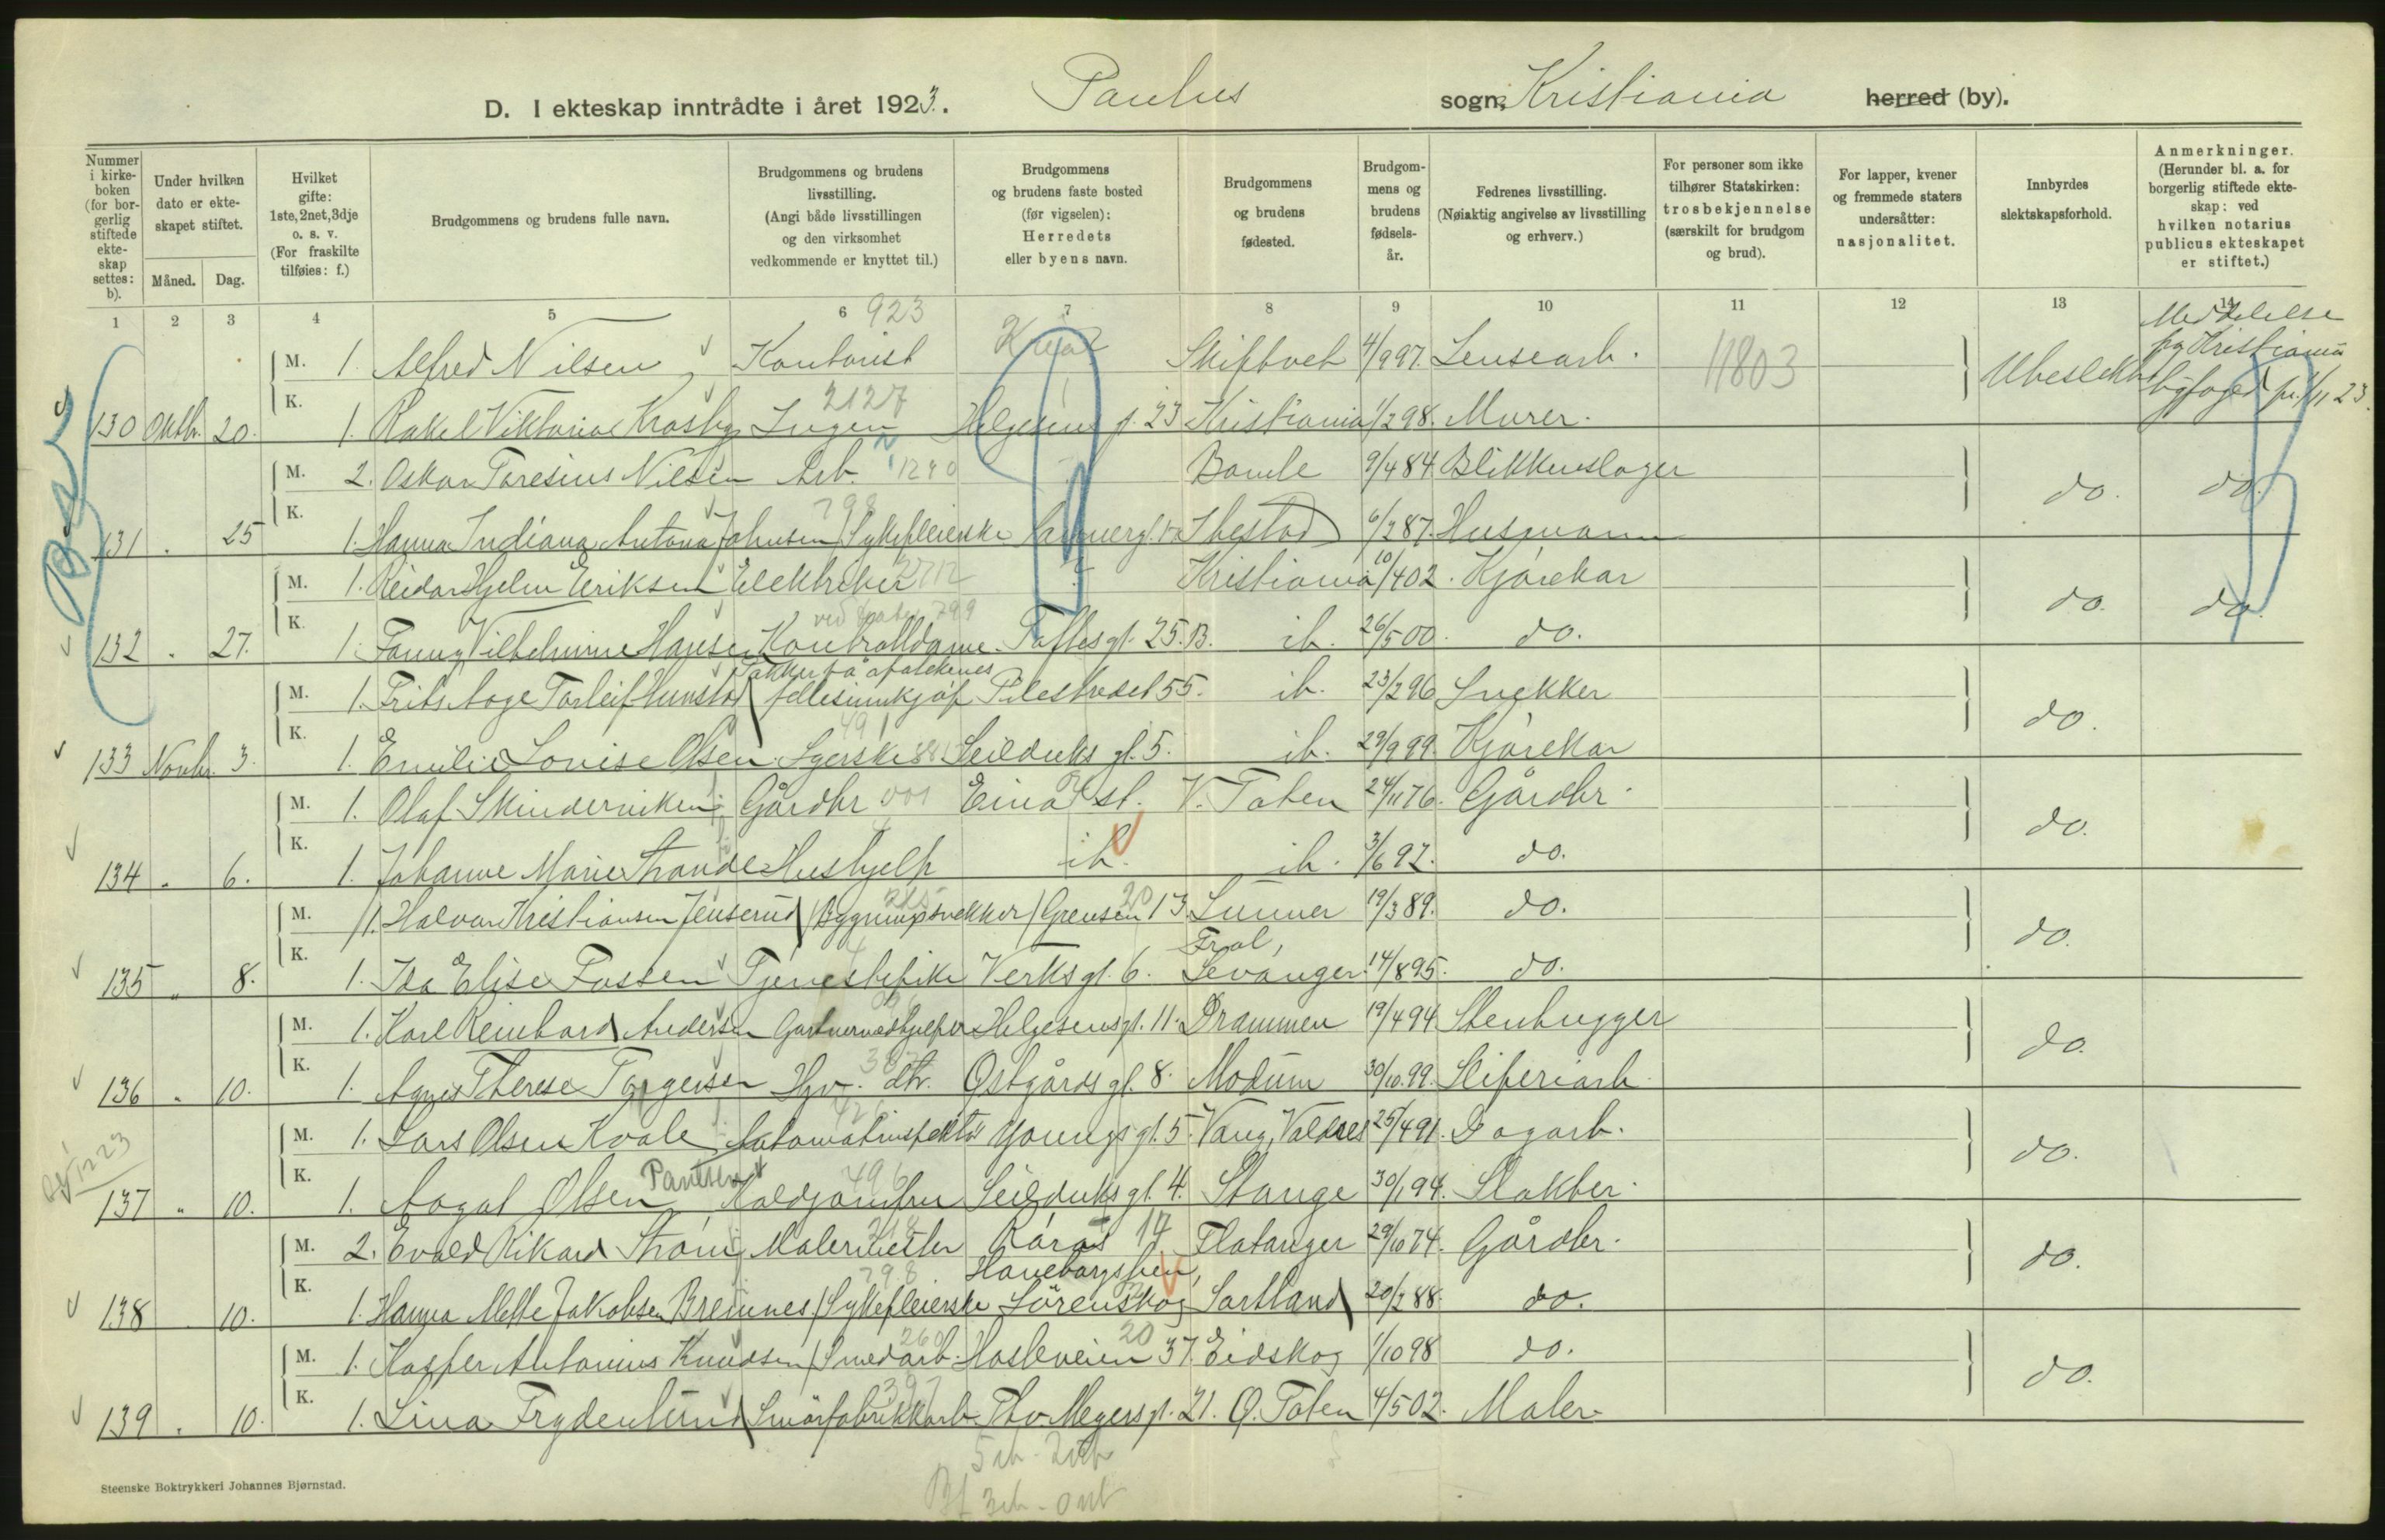 D. I ekteskap inntrådte i året 1923. Paulus sogn, Kristiania herred (by).
Nummer i kirkeboken (for borgerlig stiftede ekteskap settes: b).
Under hvilken dato er ekteskapet stiftet.
Måned. Dag.
Hvilket gifte: 1ste, 2net, 3dje o. s. v. (For fraskilte tilføies: f.)
Brudgommens og brudens fulle navn.
Brudgommens og brudens livsstilling. (Angi både livsstillingen og den virksomhet vedkommende er knyttet til.)
Brudgommens og brudens faste bosted (før vigselen): Herredets eller byens navn.
Brudgommens og brudens fødested.
Brudgommens og brudens fødselsår.
Fedrenes livsstilling. (Nøiaktig angivelse av livsstilling og erhverv.)
For personer som ikke tilhører Statskirken: trosbekjennelse (særskilt for brudgom og brud).
For lapper, kvener og fremmede staters undersåtter: nasjonalitet.
Innbyrdes slektskapsforhold.
Anmerkninger. (Herunder bl. a. for borgerlig stiftede ekteskap: ved hvilken notarius publicus ekteskapet er stiftet.)
1 2 3 4 5 6 7 8 9 10 11 12 13 14
923
Meddelelse fra Kristiania byfoged pr. 1/11 23.
M. 1. Alfred Nilsen Kontorist Kria Skiptvet 4/9 97. Lensearb. 11803 Ubeslektet
2127
130 Oktbr. 20. K. 1. Rakel Viktoria Krosby Ingen Helgesens g. 23 Kristiania 1/2 98. Murer.
M. 2. Oskar Taresius Nilsen Arb. 1290 Bamle 9/4 84. Blikkenslager do. do.
798
131 " 25 K. 1. Hanna Indiana Antona Johnsen Sykepleierske Ibestad 6/2 87. Husmann
M. 1. Reidar Hjelm Eriksen Elektriker Kristiania 10/4 02. Kjørekar do. do.
799
132 " 27. K. 1. Fanny Vilhelmine Hansen Kontrolldame Toftesgt. 25.B. ib. 26/5 00. do.
Pakker på apotekenes
M. 1. Frits Aage Torleif Hunstad fellesinnkjøp Pilestredet 55. ib. 23/2 96 Snekker do.
491
133 Novbr. 3. K. 1. Emilie Lovise Olsen Syerske Seilduks gt. 5. ib. 29/9 99. Kjørekar
M. 1. Olaf Skinderviken Gårdbr 001 Eina st. V. Toten 24/11 76. Gårdbr. do.
134 " 6. K. 1. Johanne Marie Strande Hushjelp ib. ib. 3/6 92. do.
M. 1. Halvor Kristiansen Jenserud Bygningssnekker Grensen 13 Lunner 19/3 89. do. do.
Frol,
135 " 8. K. 1. Ida Elise Fossen Tjenestepike Verksgt. 6. Levanger 14/8 95. do.
M. 1. Karl Reinhard Andersen Gartnermedhjelper Helgesensgt. 11. Drammen 19/4 94 Stenhugger do.
136 " 10. K. 1. Agnes Therese Torgersen Hjv. dtr. Østgårdsgt. 8. Modum 30/10 99. Sliperiarb.
M. 1. Lars Olsen Kvale Automatinspektør Youngs gt. 5. Vang, Valdres 25/4 91. Dagarb. do.
496
137 " 10. K. 1. Aagat Olsen Koldjomfru Seilduks gt. 4. Stange 30/1 94. Slakter.
M. 2. Evald Rikard Strøm Malermester Rørås 17 Flatanger 29/10 74. Gårdbr. do.
798 Haneborgsveien,
138 10. K. 1. Hanna Mette Jakobsen Breines Sykepleierske Lørenskog Sortland 20/2 88. do.
260 20
M. 1. Kasper Antonius Knudsen Smedarb. Hasleveien 37. Eidskog 1/10 98 do. do.
397
139 " 10. K. 1. Lina Frydenlund Smørfabrikkarb. Thv. Meyers gt. 21. Ø. Toten 4/5 02. Maler
Steenske Boktrykkeri Johannes Bjørnstad.